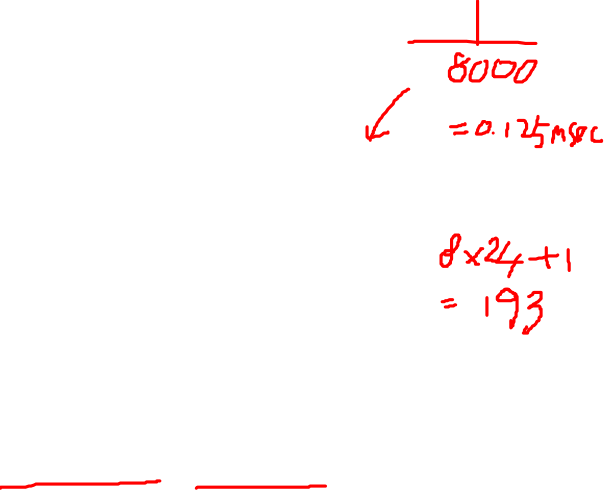 1
8000
= 0.125 msec
8×24+1
= 193